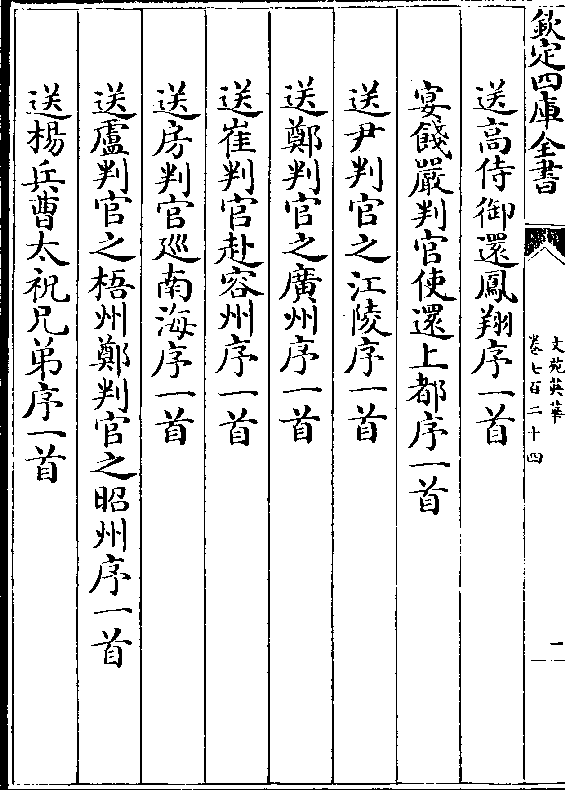 欽定四庫全書
文苑英華
卷七百二十四
一
送高侍御還鳳翔序一首
宴餞嚴判官使還上都序一首
送尹判官之江陵序一首
送鄭判官之廣州序一首
送崔判官赴容州序一首
送房判官廵南海序一首
送盧判官之梧州鄭判官之昭州序一首
送楊兵曹太祝兄弟序一首